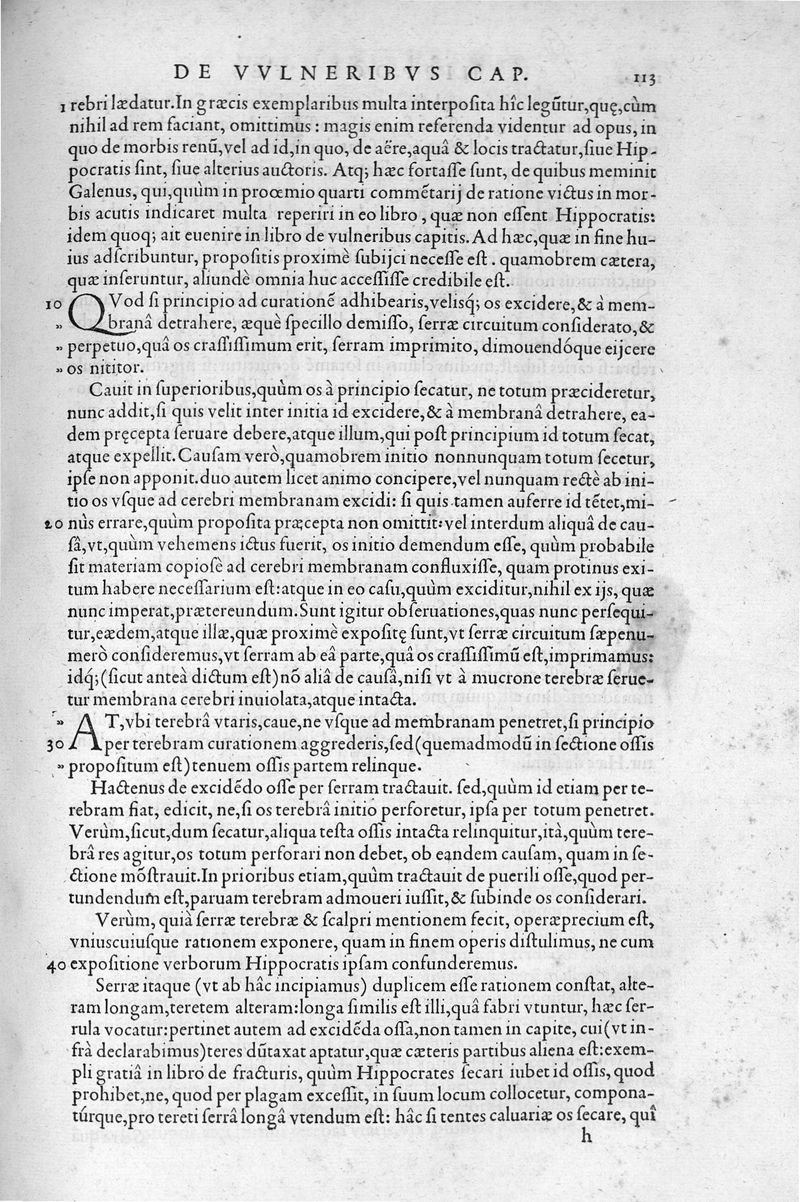 DE VVLNERIBVS CAP. 113
1 rebri lædatur.In græcis exemplaribus multa interpoſita hîc legũtur,quę,cùm
nihil ad rem faciant, omittimus : magis enim referenda videntur ad opus, in
quo de morbis renũ,vel ad id,in quo, de aëre,aquâ & locis tractatur,ſiue Hip-
pocratis ſint, ſiue alterius auctoris. Atq; hæc fortaſſe ſunt, de quibus meminit
Galenus, qui,quùm in proœmio quarti commẽtarij de ratione victus in mor-
bis acutis indicaret multa reperiri in eo libro , quæ non eſſent Hippocratis:
idem quoq; ait euenire in libro de vulneribus capitis. Ad hæc,quæ in fine hu-
ius adſcribuntur, propoſitis proximè ſubijci neceſſe eſt . quamobrem cætera,
quæ inſeruntur, aliundè omnia huc acceſſiſſe credibile eſt.
10 QVod ſi principio ad curationẽ adhibearis,velisq́; os excidere,& à mem-
„ branâ detrahere, æquè ſpecillo demiſſo, ſerræ circuitum conſiderato,&
„ perpetuo,quâ os craſſiſſimum erit, ſerram imprimito, dimouendóque eijcere
„ os nititor.
Cauit in ſuperioribus,quùm os à principio ſecatur, ne totum præcideretur,
nunc addit,ſi quis velit inter initia id excidere,& à membranâ detrahere, ea-
dem pręcepta ſeruare debere,atque illum,qui poſt principium id totum ſecat,
atque expellit. Cauſam verò,quamobrem initio nonnunquam totum ſecetur,
ipſe non apponit.duo autem licet animo concipere,vel nunquam rectè ab ini-
tio os vſque ad cerebri membranam excidi: ſi quis tamen auferre id tẽtet,mi-
20 nùs errare,quùm propoſita præcepta non omittit:vel interdum aliquâ de cau-
ſâ,vt,quùm vehemens ictus fuerit, os initio demendum eſſe, quùm probabile
ſit materiam copioſè ad cerebri membranam confluxiſſe, quam protinus exi-
tum habere neceſſarium eſt:atque in eo caſu,quùm exciditur,nihil ex ijs, quæ
nunc imperat,prætereundum.Sunt igitur obſeruationes,quas nunc perſequi-
tur,eædem,atque illæ,quæ proximè expoſitę ſunt,vt ſerræ circuitum ſæpenu-
merò conſideremus,vt ſerram ab eâ parte,quâ os craſſiſſimũ eſt,imprimamus:
idq́;(ſicut anteà dictum eſt)nõ aliâ de cauſâ,niſi vt à mucrone terebræ ſerue-
tur membrana cerebri inuiolata,atque intacta.
„ AT,vbi terebrâ vtaris,caue,ne vſque ad membranam penetret,ſi principio
30 per terebram curationem aggrederis,ſed(quemadmodũ in ſectione oſſis
„ propoſitum eſt)tenuem oſſis partem relinque.
Hactenus de excidẽdo oſſe per ſerram tractauit. ſed,quùm id etiam per te-
rebram fiat, edicit, ne,ſi os terebrâ initio perforetur, ipſa per totum penetret.
Verùm,ſicut,dum ſecatur,aliqua teſta oſſis intacta relinquitur,ità,quùm tere-
brâ res agitur,os totum perforari non debet, ob eandem cauſam, quam in ſe-
ctione mõſtrauit.In prioribus etiam,quùm tractauit de puerili oſſe,quod per-
tundendum eſt,paruam terebram admoueri iuſſit,& ſubinde os conſiderari.
Verùm, quià ſerræ terebræ & ſcalpri mentionem fecit, operæprecium eſt,
vniuscuiuſque rationem exponere, quam in finem operis diſtulimus, ne cum
40 expoſitione verborum Hippocratis ipſam confunderemus.
Serræ itaque (vt ab hâc incipiamus) duplicem eſſe rationem conſtat, alte-
ram longam,teretem alteram:longa ſimilis eſt illi,quâ fabri vtuntur, hæc ſer-
rula vocatur:pertinet autem ad excidẽda oſſa,non tamen in capite, cui(vt in-
frà declarabimus)teres dũtaxat aptatur,quæ cæteris partibus aliena eſt:exem-
pli gratiâ in libro de fracturis, quùm Hippocrates ſecari iubet id oſſis, quod
prohibet,ne, quod per plagam exceſſit, in ſuum locum collocetur, compona-
túrque,pro tereti ſerrâ longâ vtendum eſt: hâc ſi tentes caluariæ os ſecare, quî
h